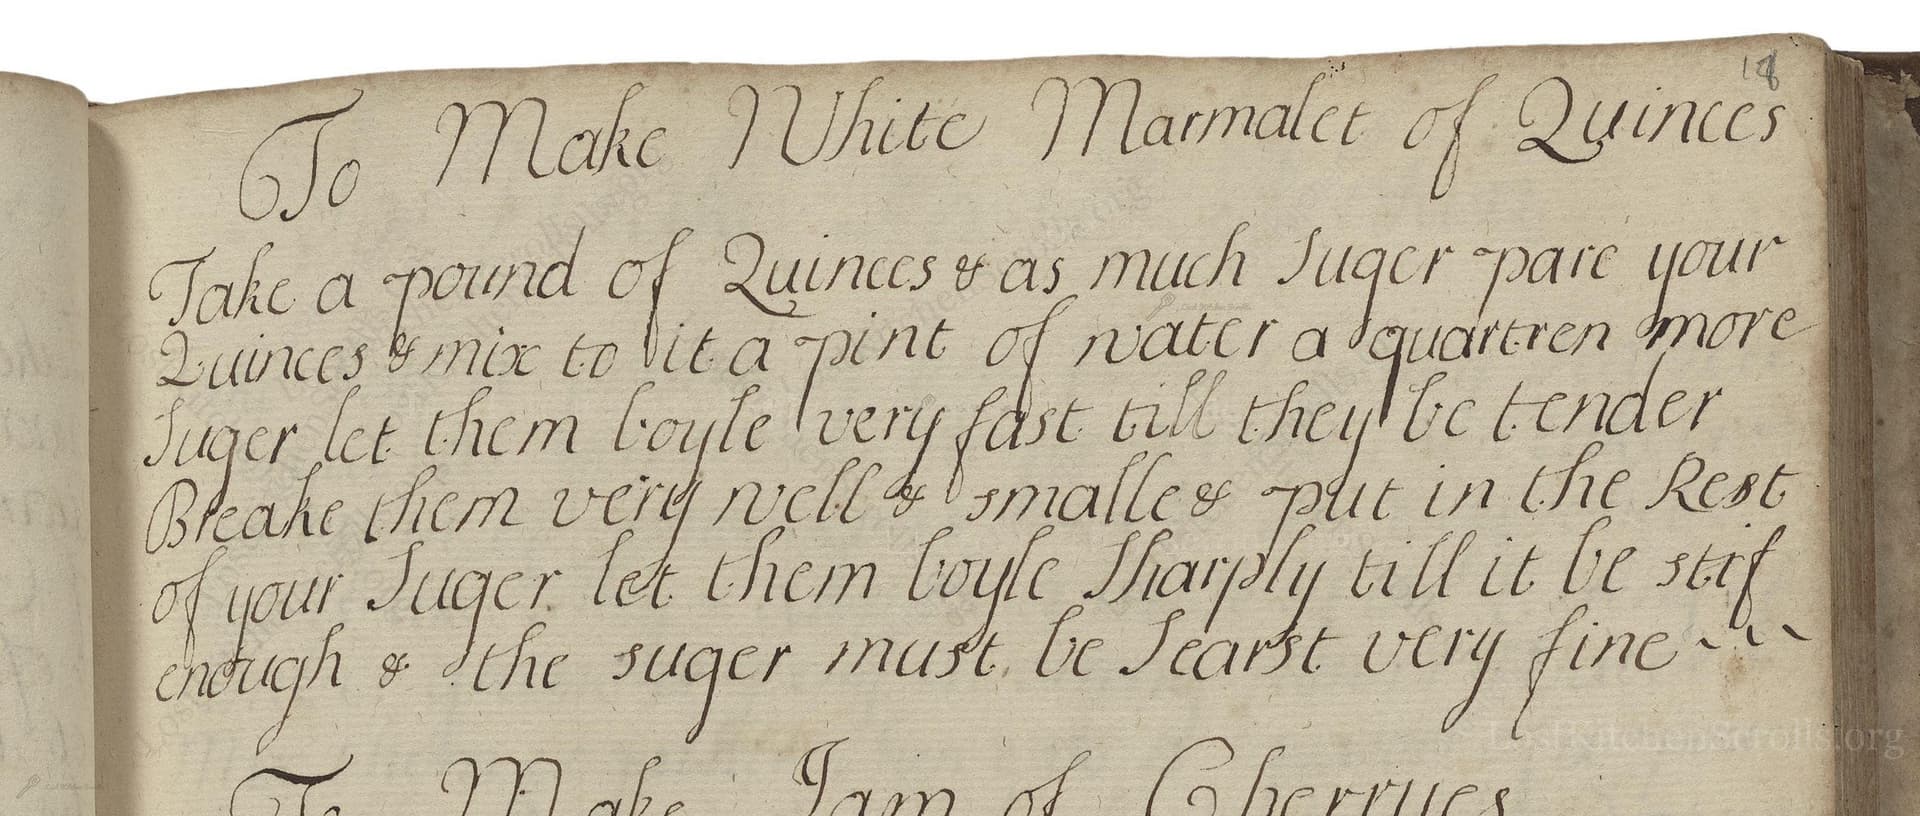 18
To Make White Marmalet of Quinces
Take a pound of Quinces & as much Suger pare your
Quinces & mix to it a pint of water a quartren more
Suger let them boyle very fast till they be tender
Breake them very well & smalle & put in the Rest
of your Suger let them boyle Sharply till it be stif
enough & the suger must be Searst very fine ~~~
To Make Jam of Cherryes
LostKitchenScrolls.org